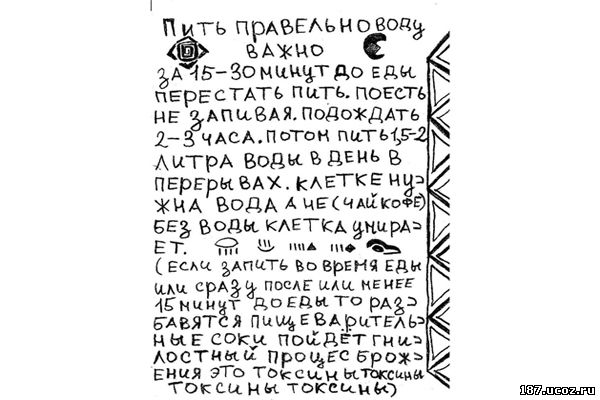 Пить правельно воду
важно
за 15-30 минут до еды
перестать пить. поесть
не запивая. подождать
2-3 часа. потом пить 1,5-2
литра воды в день в
перерывах. клетке ну-
жна вода а не (чай кофе)
без воды клетка умира-
ет.
(если запить во время еды
или сразу после или менее
15 минут до еды то раз-
бавятся пищеваритель-
ные соки пойдёт гни-
лостный процес брож-
ения это токсины токсины
токсины токсины)
187.ucoz.ru